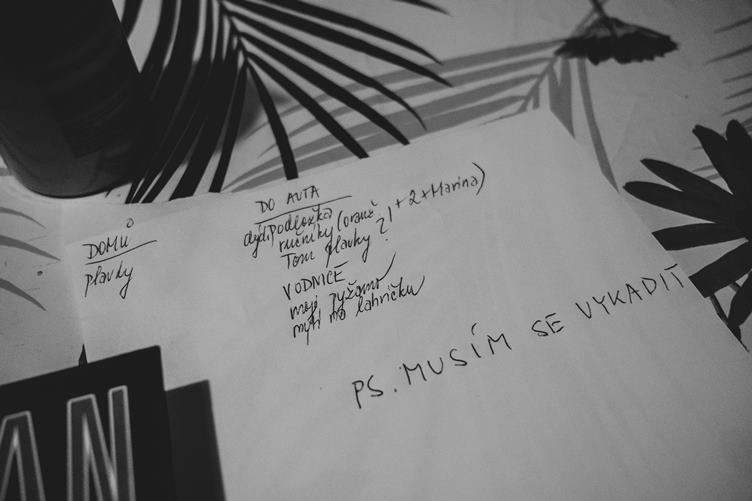 DOMŮ
plavky
DO AUTA
podložka
ručníky (oranž 1 + 2 + Marina)
Tom plavky?
VODNICE
moje pyžamo
mytí na lahvičku
PS. MUSÍM SE VYKADIT
AN